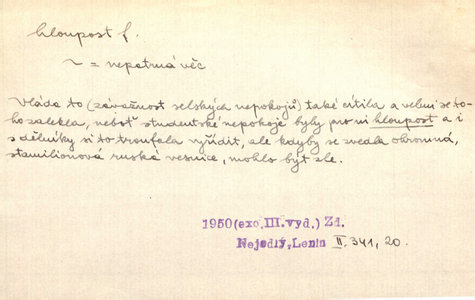 hloupost f.
~ = nepatrná věc
Vláda to (závažnost selských nepokojů) také cítila a velmi se to-
ho zalekla, neboť studentské nepokoje byly pro ni hloupost a i
s dělníky si to troufala vyřídit, ale kdyby se zvedla ohromná,
stamilionová ruská vesnice, mohlo být zle.
1950(exc.III.vyd.) Zd.
Nejedlý,Lenin II. 341, 20.